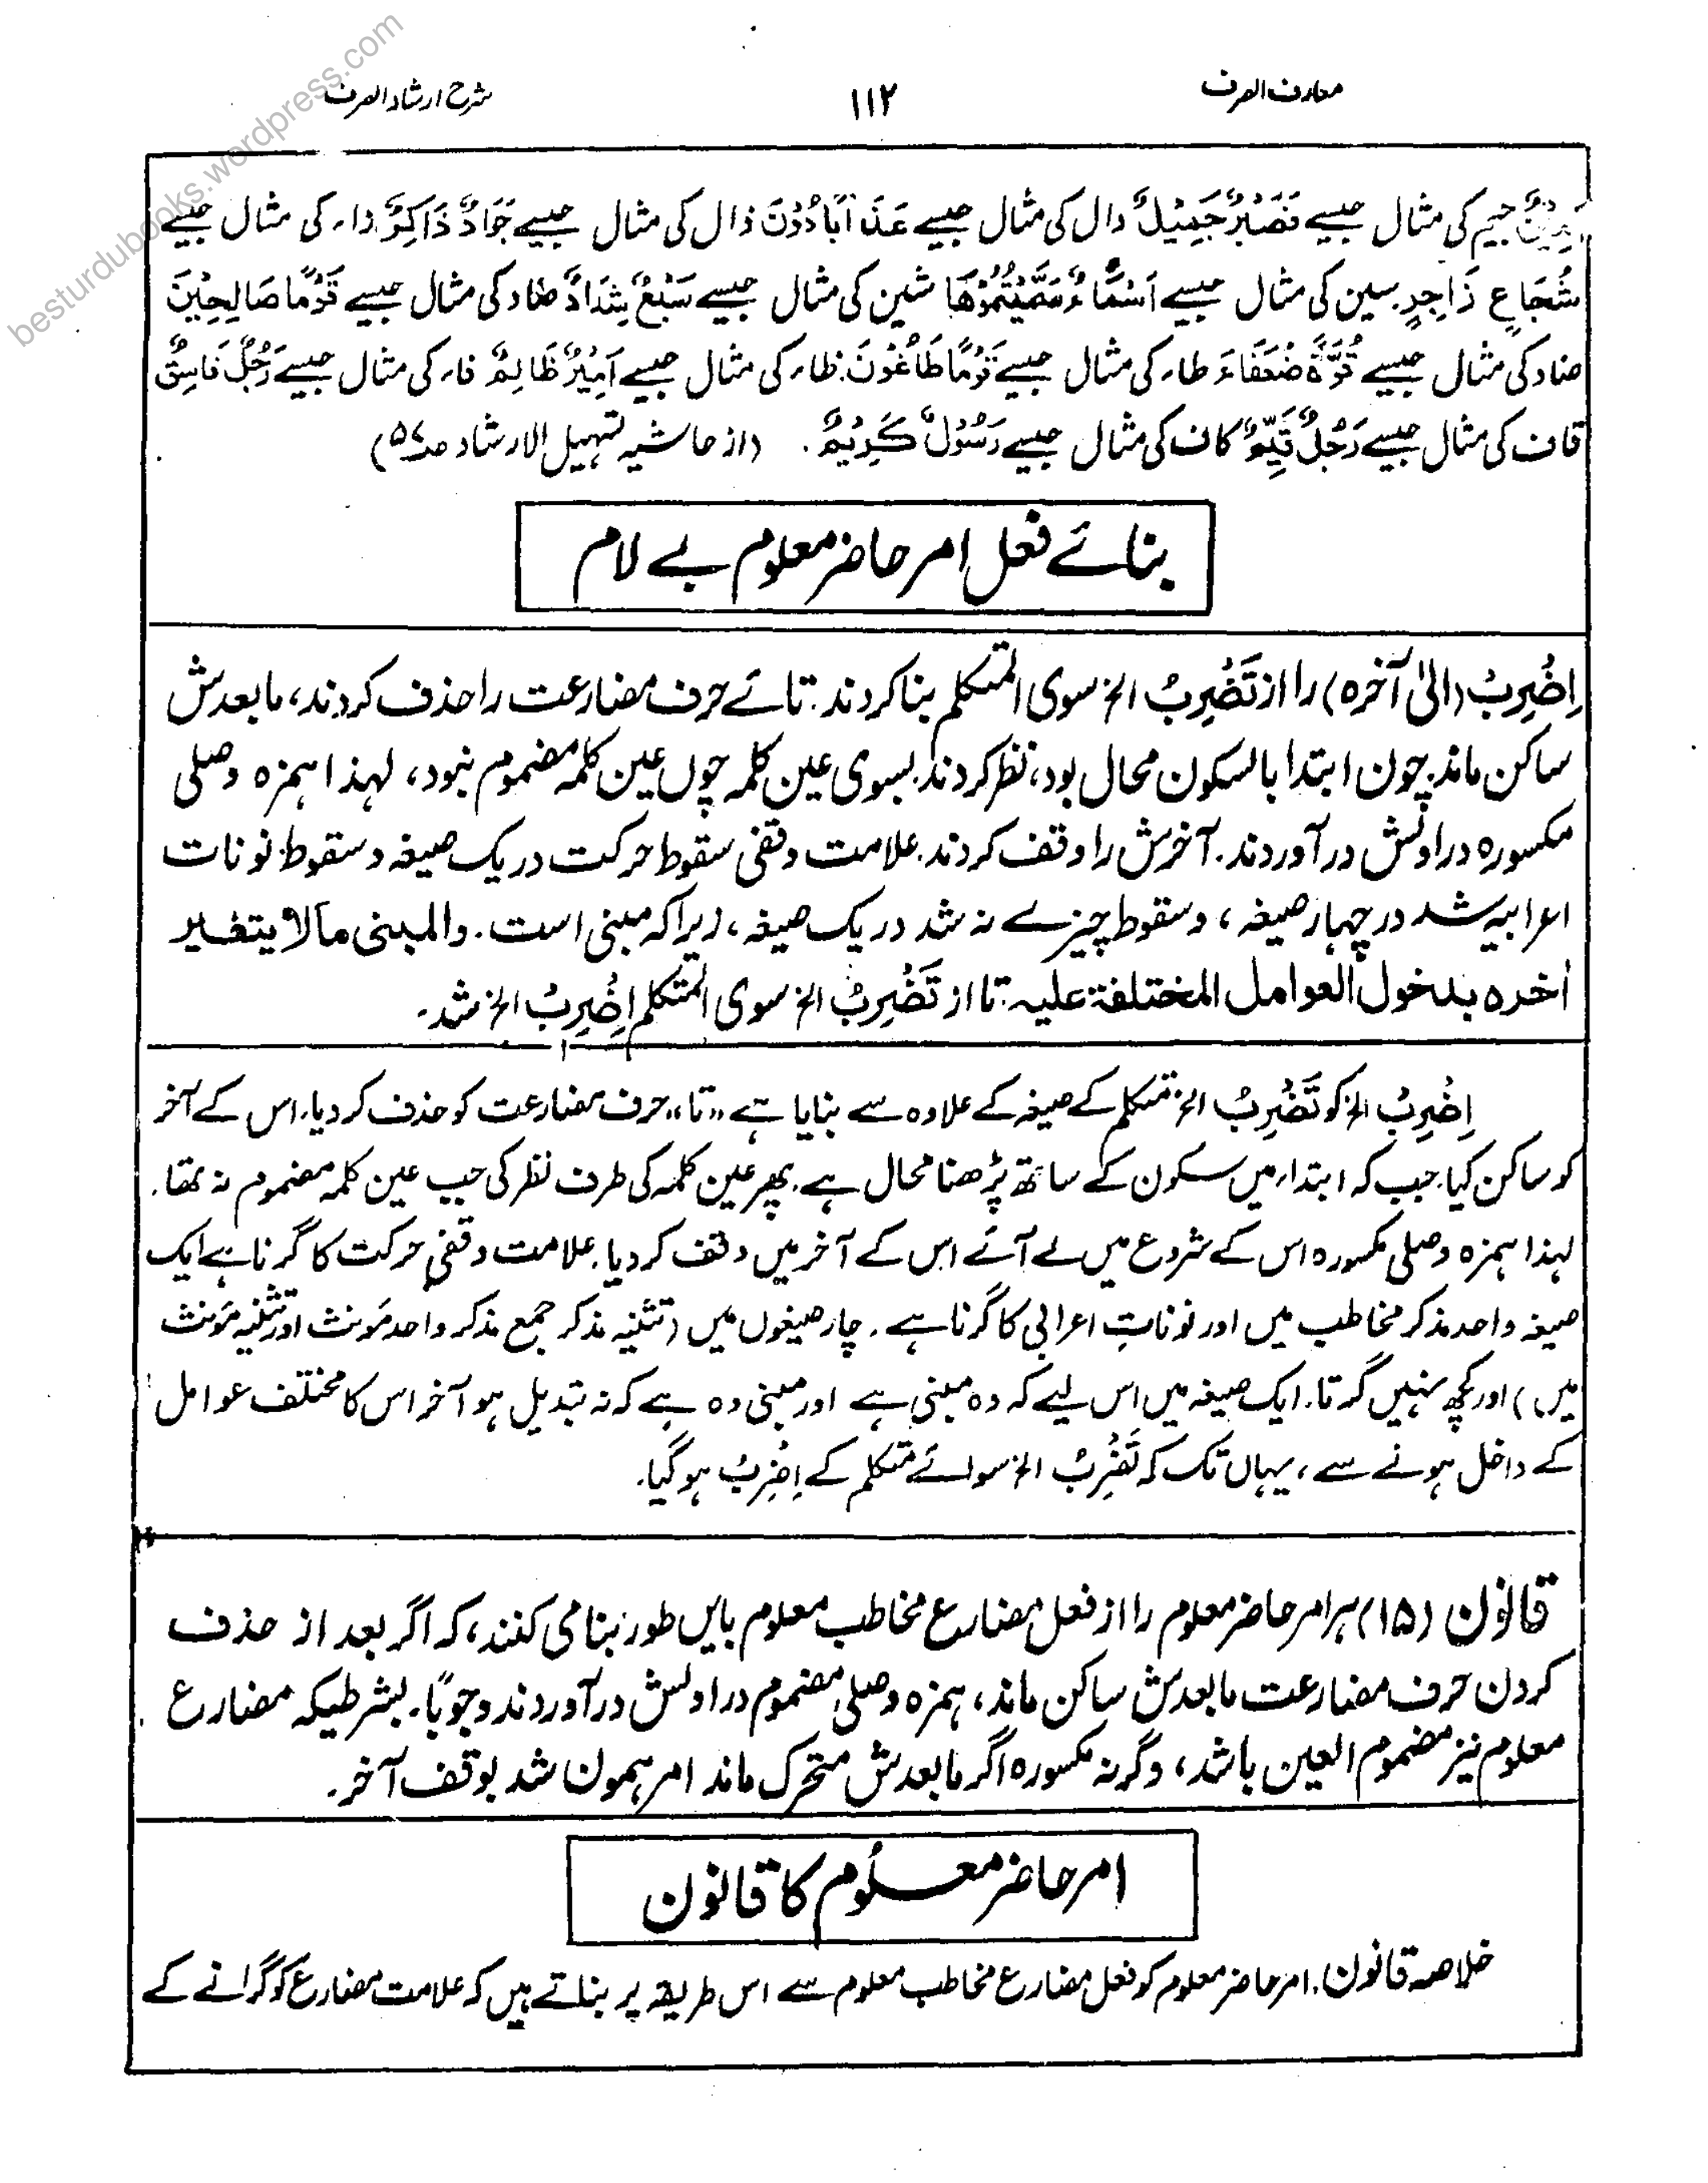 معارف الصرف
۱۱۲
شرح ارشاد الصرف
besturdubooks.wordpress.com
جیم کی مثال جیسے فَصَبْرٌ جَمِیْلٌ دال کی مثال جیسے ذال کی مثال جیسے جَوَادٌ ذَاکِرٌ زاء کی مثال جیسے
شُجَاعٍ زَاجِرٍ سین کی مثال جیسے اَسْمَاءٌ سَمَّیْتُمُوْهَا شین کی مثال جیسے سَبْعٌ شِدَادٌ صاد کی مثال جیسے قَوْمًا صَالِحِیْنَ
ضاد کی مثال جیسے قُوَّةً ضُعَفَاءَ طاء کی مثال جیسے قَوْمًا طَاغُوْنَ ظاء کی مثال جیسے اَمِیْرٌ ظَالِمٌ فاء کی مثال جیسے رَجُلٌ فَاسِقٌ
قاف کی مثال جیسے رَجُلٌ قَیِّمٌ کاف کی مثال جیسے رَسُوْلٌ کَرِیْمٌ۔ (از حاشیہ تسہیل الارشاد صـ۵۷)
بنائے فعل امر حاضر معلوم بے لام
اِضْرِبْ (الیٰ آخرہ) را از تَضْرِبُ الخ سوی المتکلم بنا کردند۔ تائے حرف مضارعت را حذف کردند، ما بعدش
ساکن ماند۔ چون ابتدا بالسکون محال بود، نظر کردند بسوی عین کلمہ چوں عین کلمہ مضموم نبود، لہذا ہمزہ وصلی
مکسورہ در اولش در آوردند۔ آخرش را وقف کردند۔ علامت وقفی سقوط حرکت در یک صیغہ و سقوط نونات
اعرابیہ شد در چہار صیغہ، و سقوط چیزے نہ شد در یک صیغہ، زیرا کہ مبنی است۔ والمبنی مالا یتغیر
اخرہ بدخول العوامل المختلفة علیہ تا از تَضْرِبُ الخ سوی المتکلم اِضْرِبْ الخ شد۔
اِضْرِبْ الخ کو تَضْرِبُ الخ متکلم کے صیغہ کے علاوہ سے بنایا ہے ,,تا،، حرف مضارعت کو حذف کر دیا۔ اس کے آخر
کو ساکن کیا۔ جب کہ ابتداء میں سکون کے ساتھ پڑھنا محال ہے۔ پھر عین کلمہ کی طرف نظر کی جب عین کلمہ مضموم نہ تھا۔
لہذا ہمزہ وصلی مکسورہ اس کے شروع میں لے آئے اس کے آخر میں وقف کر دیا۔ علامت وقفی حرکت کا گرنا ہے ایک
صیغہ واحد مذکر مخاطب میں اور نوناتِ اعرابی کا گرنا ہے۔ چار صیغوں میں (تثنیہ مذکر جمع مذکر واحد مؤنث اور تثنیہ مؤنث
میں) اور کچھ نہیں گرتا۔ ایک صیغہ میں اس لیے کہ وہ مبنی ہے اور مبنی وہ ہے کہ نہ تبدیل ہو آخر اس کا مختلف عوامل
کے داخل ہونے سے، یہاں تک کہ تَضْرِبُ الخ سوائے متکلم کے اِضْرِبْ ہو گیا۔
قانون (۱۵) ہر امر حاضر معلوم را از فعل مضارع مخاطب معلوم بایں طور بنا می کنند، کہ اگر بعد از حذف
کردن حرف مضارعت ما بعدش ساکن ماند، ہمزہ وصلی مضموم در اولش در آوردند وجوبًا۔ بشرطیکہ مضارع
معلوم نیز مضموم العین باشد، وگرنہ مکسورہ اگر ما بعدش متحرک ماند امر ہمون شد بوقف آخر۔
امر حاضر معلُوم کا قانون
خلاصہ قانون۔ امر حاضر معلوم کو فعل مضارع مخاطب معلوم سے اس طریقہ پر بناتے ہیں کہ علامت مضارع کو گرانے کے